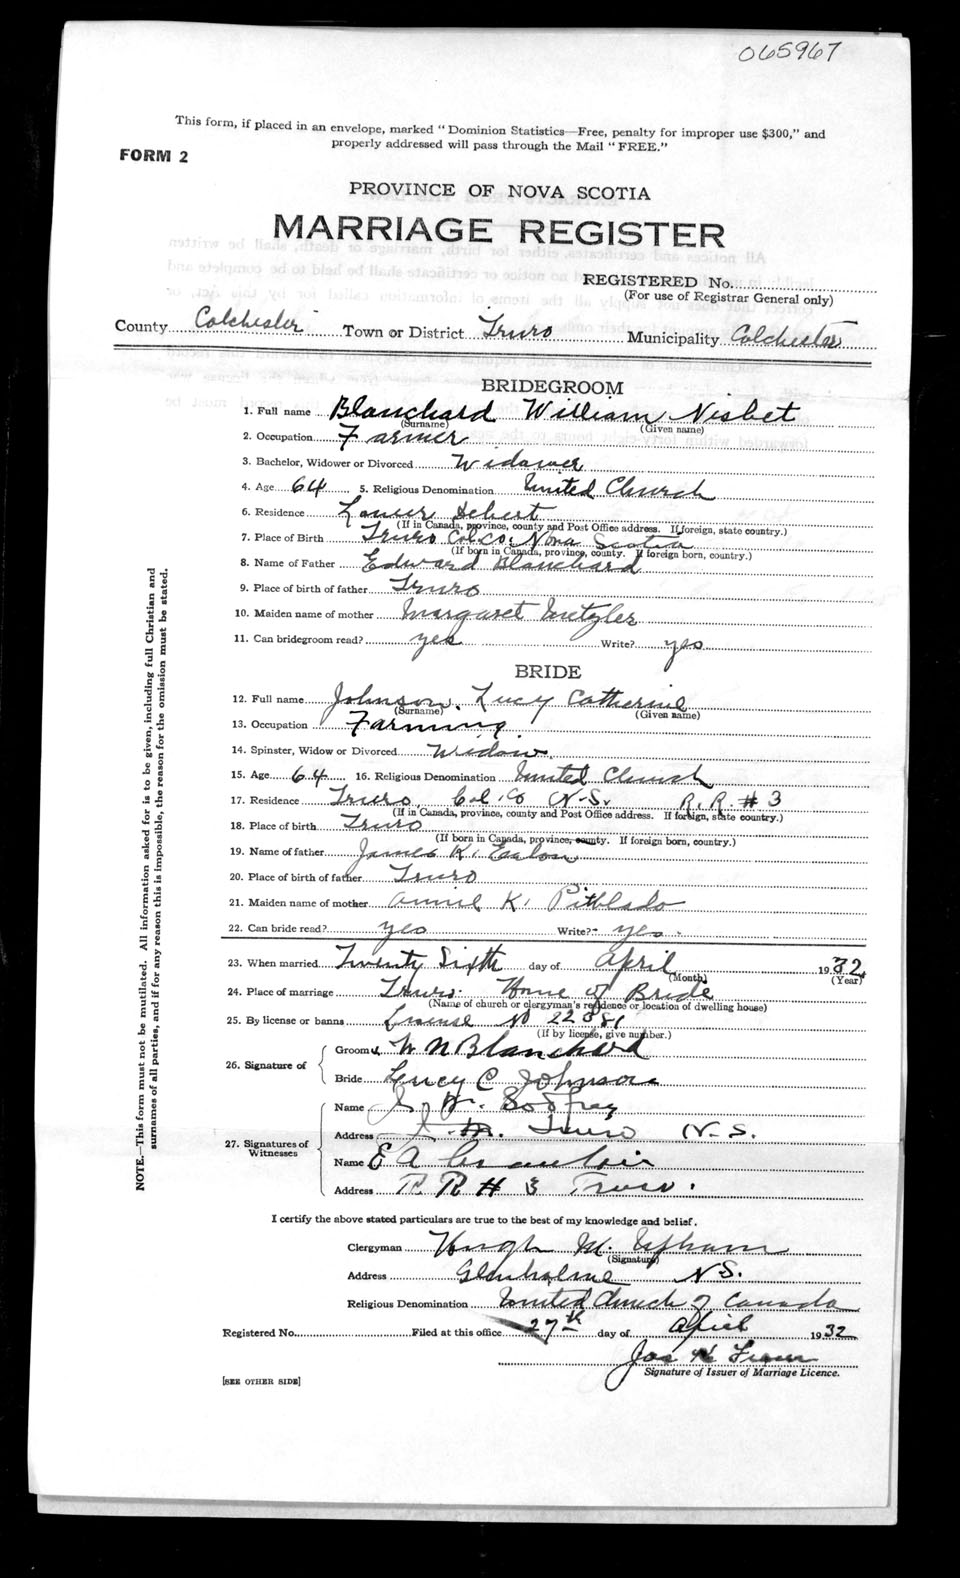 065967
This form, if placed in an envelope, marked "Dominion Statistics—Free, penalty for improper use $300," and
properly addressed will pass through the Mail "FREE."
FORM 2
PROVINCE OF NOVA SCOTIA
MARRIAGE REGISTER
REGISTERED No.
(For use of Registrar General only)
County Colchester Town or District Truro Municipality Colchester
BRIDEGROOM
1. Full name Blanchard William Nisbet
(Surname) (Given name)
2. Occupation Farmer
3. Bachelor, Widower or Divorced Widower
4. Age 64 5. Religious Denomination United Church
6. Residence Lower Debert
(If in Canada, province, county and Post Office address. If foreign, state country.)
7. Place of Birth Truro Col. Co. Nova Scotia
(If born in Canada, province, county. If foreign born, country.)
8. Name of Father Edward Blanchard
9. Place of birth of father Truro
10. Maiden name of mother Margaret Metzler
11. Can bridegroom read? yes Write? yes
BRIDE
12. Full name Johnson, Lucy Catherine
(Surname) (Given name)
13. Occupation Farming
14. Spinster, Widow or Divorced Widow
15. Age 64 16. Religious Denomination United Church
17. Residence Truro, Col. Co N.S. R.R. # 3
(If in Canada, province, county and Post Office address. If foreign, state country.)
18. Place of birth Truro
(If born in Canada, province, county. If foreign born, country.)
19. Name of father James K. Eaton
20. Place of birth of father Truro
21. Maiden name of mother Annie K. Pitblado
22. Can bride read? yes Write? yes.
23. When married Twenty Sixth day of April 1932
(Month) (Year)
24. Place of marriage Truro. Home of Bride
(Name of church or clergyman's residence or location of dwelling house)
25. By license or banns License No 22881
(If by license, give number.)
26. Signature of
Groom W N Blanchard
Bride Lucy C Johnson
27. Signatures of Witnesses
Name Godfrey
Address Truro N.S.
Name E A
Address R R # 3 Truro.
I certify the above stated particulars are true to the best of my knowledge and belief.
Clergyman Hugh M. Upham
(Signature)
Address Glenholme N.S.
Religious Denomination United Church of Canada
Registered No. Filed at this office 27th day of April 1932
Jas
Signature of Issuer of Marriage Licence.
[SEE OTHER SIDE]
NOTE.—This form must not be mutilated. All information asked for is to be given, including full Christian and
surnames of all parties, and if for any reason this is impossible, the reason for the omission must be stated.